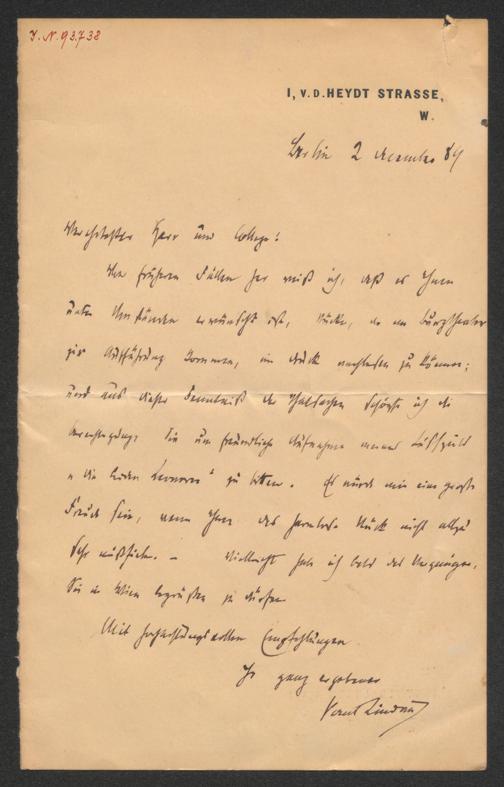 I.N. 93.738
I, V. D. HEYDT STRASSE,
W.
Berlin 2 December 89
Verehrtester Herr und College!
Von früheren Fällen her weiß ich, daß es Ihnen
unter Umständen erwünscht ist, Stücke, die am Burgtheater
zur Aufführung kommen, im Druck nachlesen zu können;
und aus dieser Kenntniß der Thatsachen schöpfe ich die
Berechtigung, Sie um freundliche Aufnahme meines Lustspiels
„die beiden Leonoren" zu bitten. Es würde mir eine große
Freude sein, wenn Ihnen das harmlose Stück nicht allzu
sehr mißfiele. – Vielleicht habe ich bald das Vergnügen,
Sie in Wien begrüßen zu dürfen.
Mit hochachtungsvollen Empfehlungen
Ihr ganz ergebener
Paul Lindau